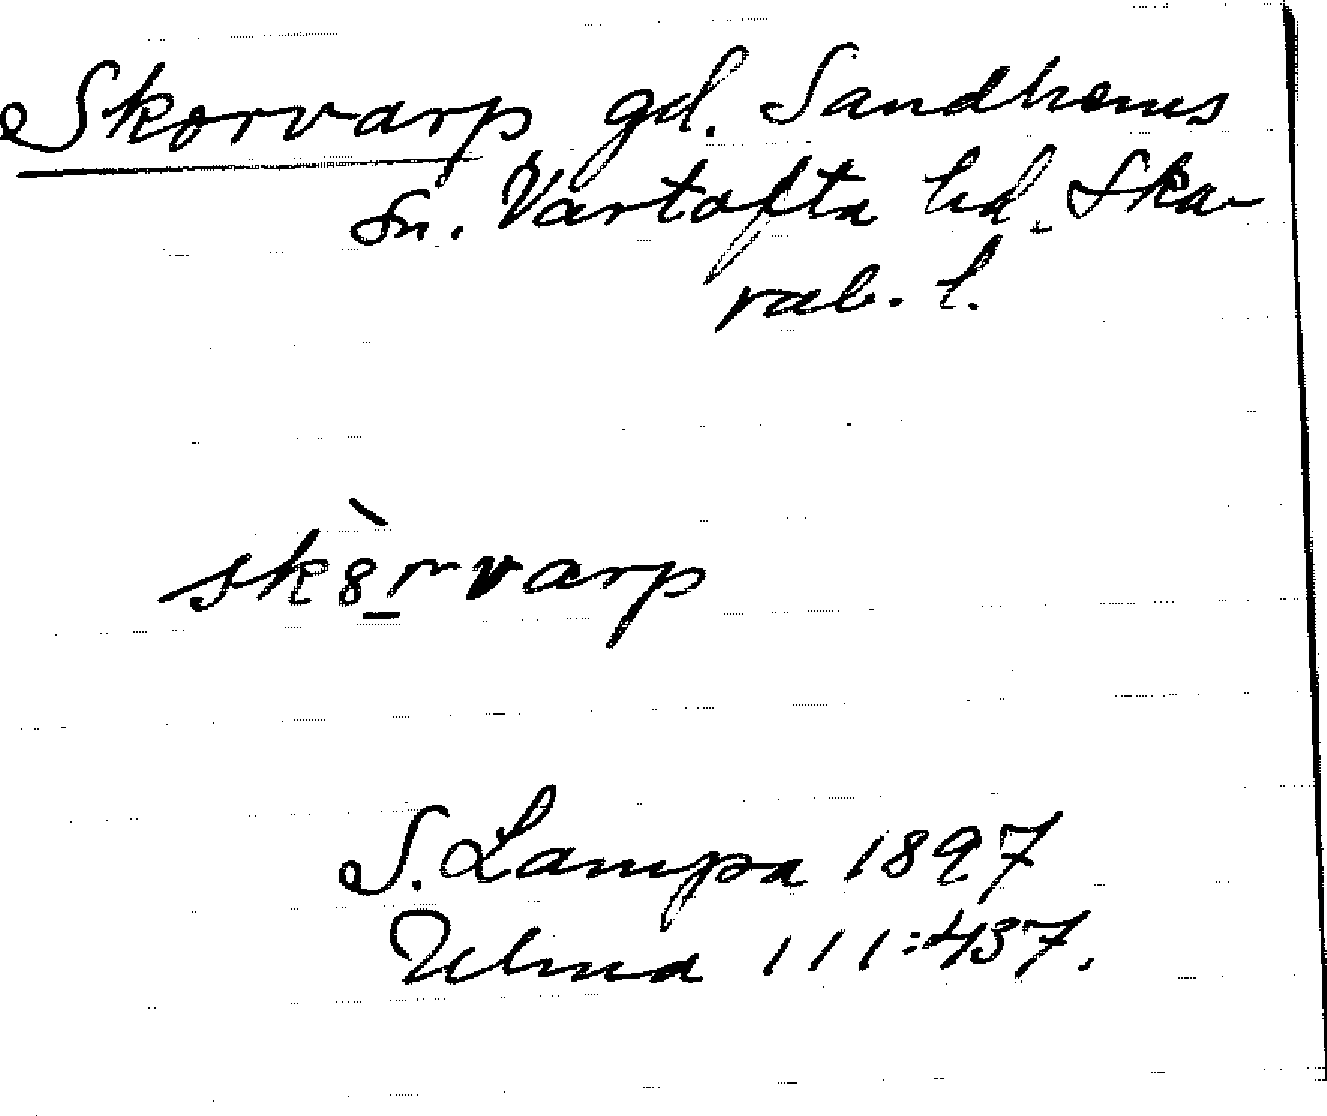 Skorvarp gd. Sandhems
sn. Vartofta hd. Ska-
rab. l.
sk8̀r-varp
S. Lampa 1897
Ulma 111:437.